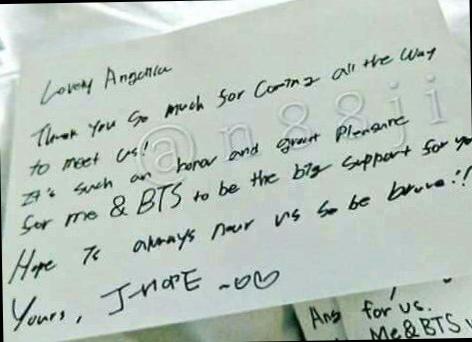 Lovely Angelica
Thank You So much for Coming all the Way
to meet us!
It's such an honor and great Pleasure
for me & BTS to be the big support for you
Hope Is always near us so be brave!!
Yours, J-HOPE ~♡♡
@n88ji
Ang for us.
Me & BTS